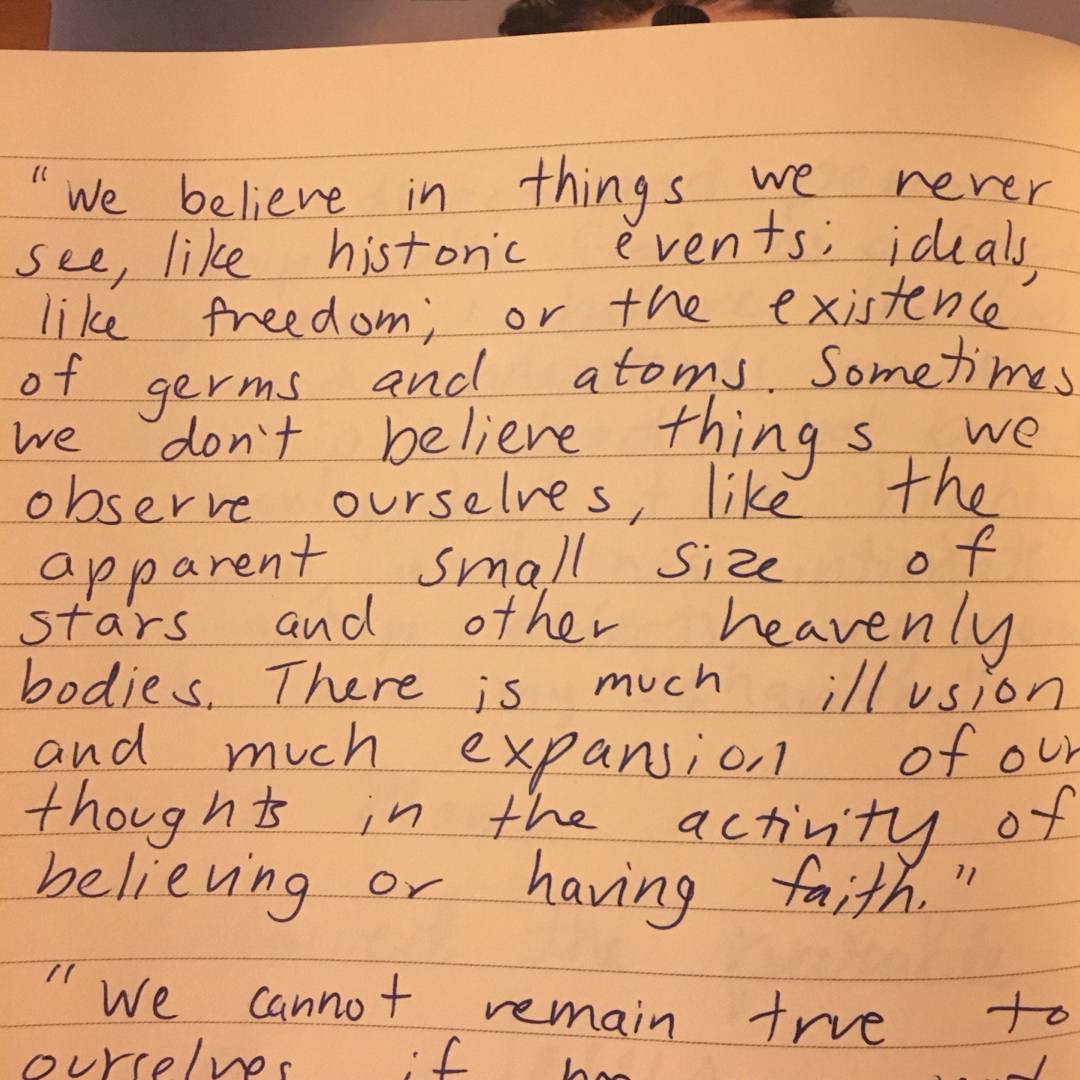 "We believe in things we never
see, like historic events; ideals,
like freedom; or the existence
of germs and atoms. Sometimes
we don't believe things we
observe ourselves, like the
apparent small size of
stars and other heavenly
bodies. There is much illusion
and much expansion of our
thoughts in the activity of
believing or having faith."
"We cannot remain true to
ourselves if